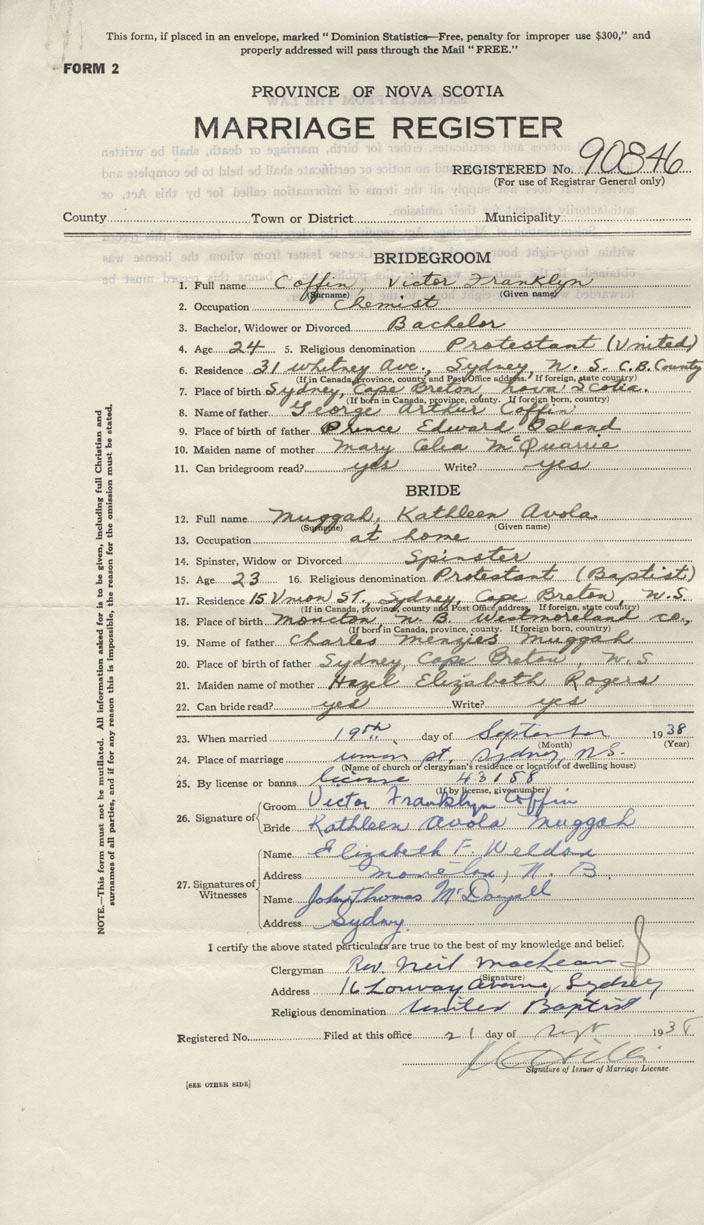 This form, if placed in an envelope, marked "Dominion Statistics—Free, penalty for improper use $300," and
properly addressed will pass through the Mail "FREE."
FORM 2
PROVINCE OF NOVA SCOTIA
MARRIAGE REGISTER
REGISTERED No. 90846
(For use of Registrar General only)
County Town or District Municipality
BRIDEGROOM
1. Full name Coffin, Victor Franklyn
(Surname) (Given name)
2. Occupation Chemist
3. Bachelor, Widower or Divorced Bachelor
4. Age 24 5. Religious denomination Protestant (United)
6. Residence 31 Whitney Ave., Sydney, N. S. C.B. County
(If in Canada, province, county and Post Office address. If foreign, state country)
7. Place of birth Sydney, Cape Breton, Nova Scotia.
(If born in Canada, province, county. If foreign born, country)
8. Name of father George Arthur Coffin
9. Place of birth of father Prince Edward Island
10. Maiden name of mother Mary Celia McQuarrie
11. Can bridegroom read? yes Write? yes
BRIDE
12. Full name Muggah, Kathleen Avola
(Surname) (Given name)
13. Occupation at home
14. Spinster, Widow or Divorced Spinster
15. Age 23 16. Religious denomination Protestant (Baptist)
17. Residence 15 Union St., Sydney, Cape Breton, N.S
(If in Canada, province, county and Post Office address. If foreign, state country)
18. Place of birth Moncton, N. B. Westmoreland Co.,
(If born in Canada, province, county. If foreign born, country)
19. Name of father Charles Menzies Muggah
20. Place of birth of father Sydney, Cape Breton, N.S
21. Maiden name of mother Hazel Elizabeth Rogers
22. Can bride read? yes Write? yes
23. When married 19th day of September 1938
(Month) (Year)
24. Place of marriage union st, Sydney, N.S.
(Name of church or clergyman's residence or location of dwelling house)
25. By license or banns license 43158
(If by license, give number)
26. Signature of Groom Victor Franklyn Coffin
Bride Kathleen Avola Muggah
27. Signatures of Witnesses
Name Elizabeth F. Weldon
Address Moncton, N. B.
Name John Thomas McDougall
Address Sydney
I certify the above stated particulars are true to the best of my knowledge and belief.
Clergyman Rev. Neil MacLean
(Signature)
Address 16 Louvain Avenue, Sydney
Religious denomination United Baptist
Registered No. Filed at this office 21 day of Sept 1938
Signature of Issuer of Marriage License.
[SEE OTHER SIDE]
NOTE.—This form must not be mutilated. All information asked for is to be given, including full Christian and
surnames of all parties, and if for any reason this is impossible, the reason for the omission must be stated.